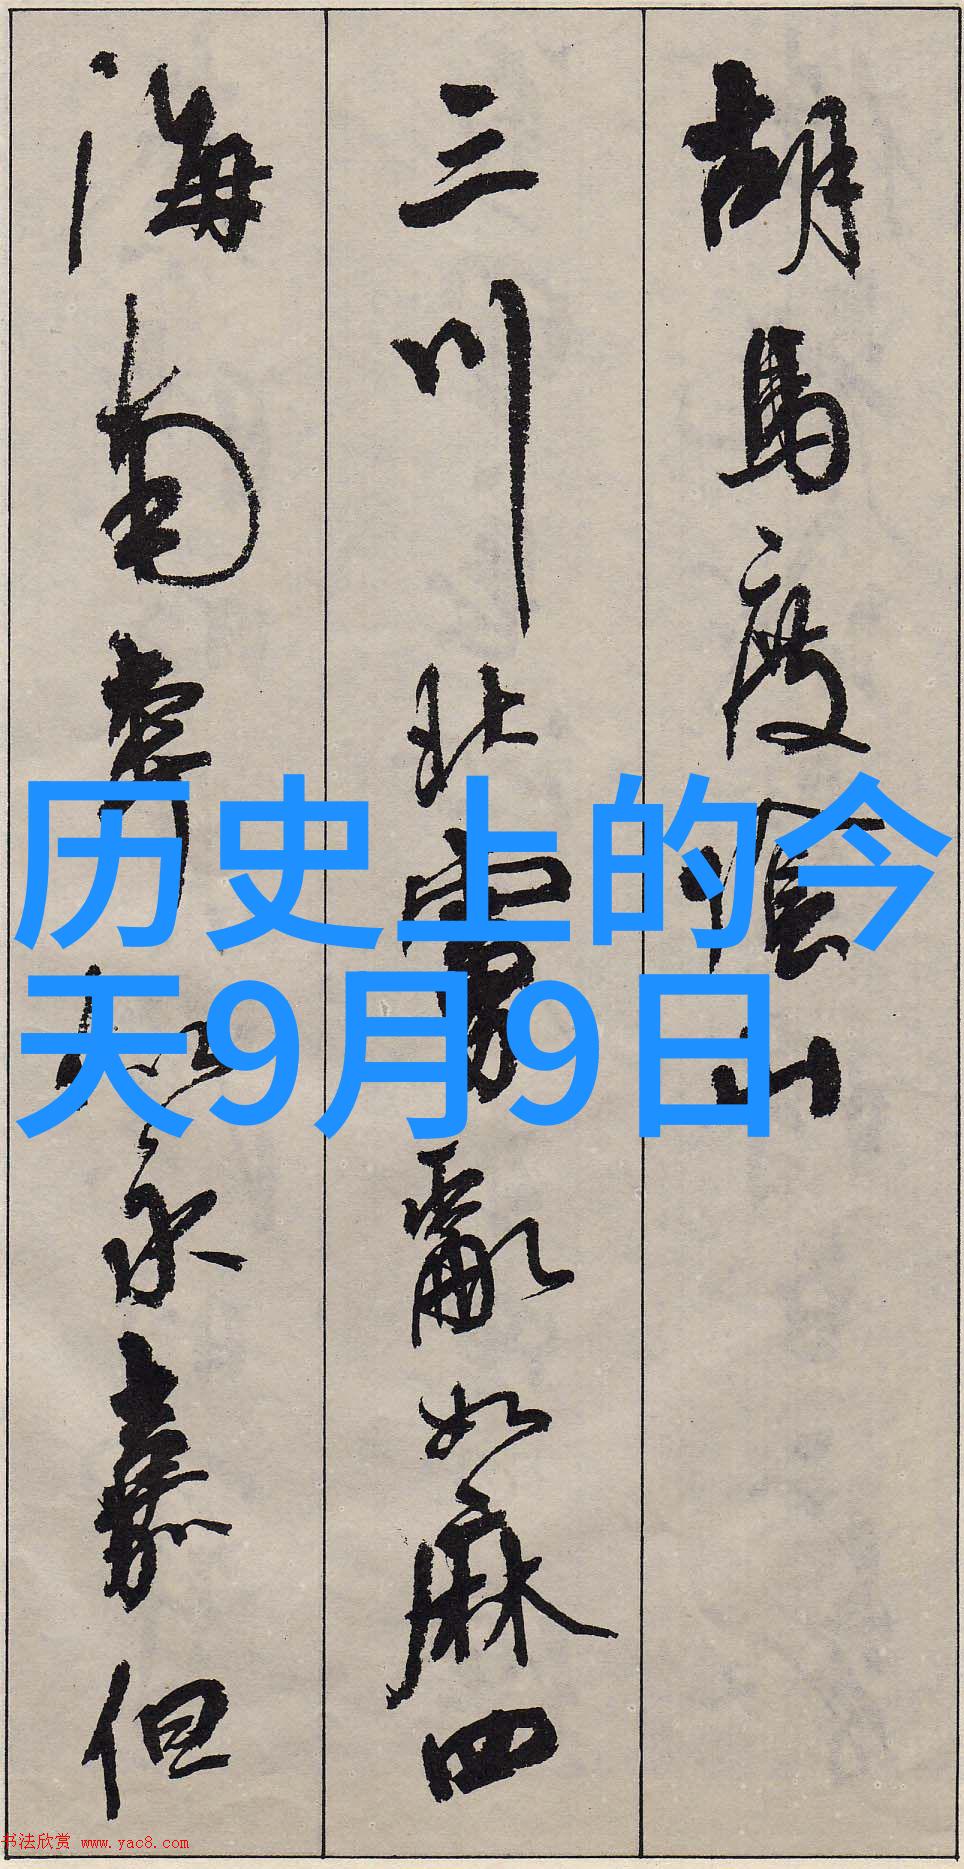 胡馬度陰山
三川北虜亂如麻四
海南奔似永嘉但
历史上的今
天9月9日
书法欣赏 www.yac8.com